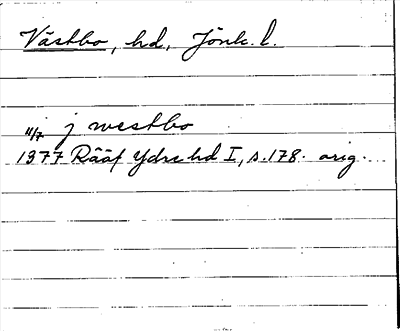 Västbo, hd, Jönk. l.
11/7 j westbo
1377 Rääf Ydre hd I, s. 178. orig.